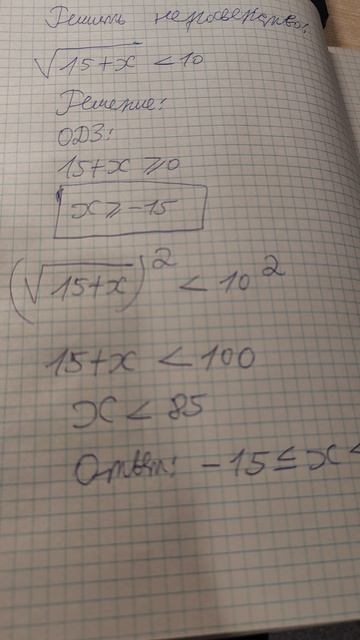 Решить неравенство:
√15+x < 10
Решение:
ОДЗ:
15+x ⩾ 0
x ⩾ -15
(√15+x)² < 10²
15+x < 100
x < 85
Ответ: -15 ≤ x <